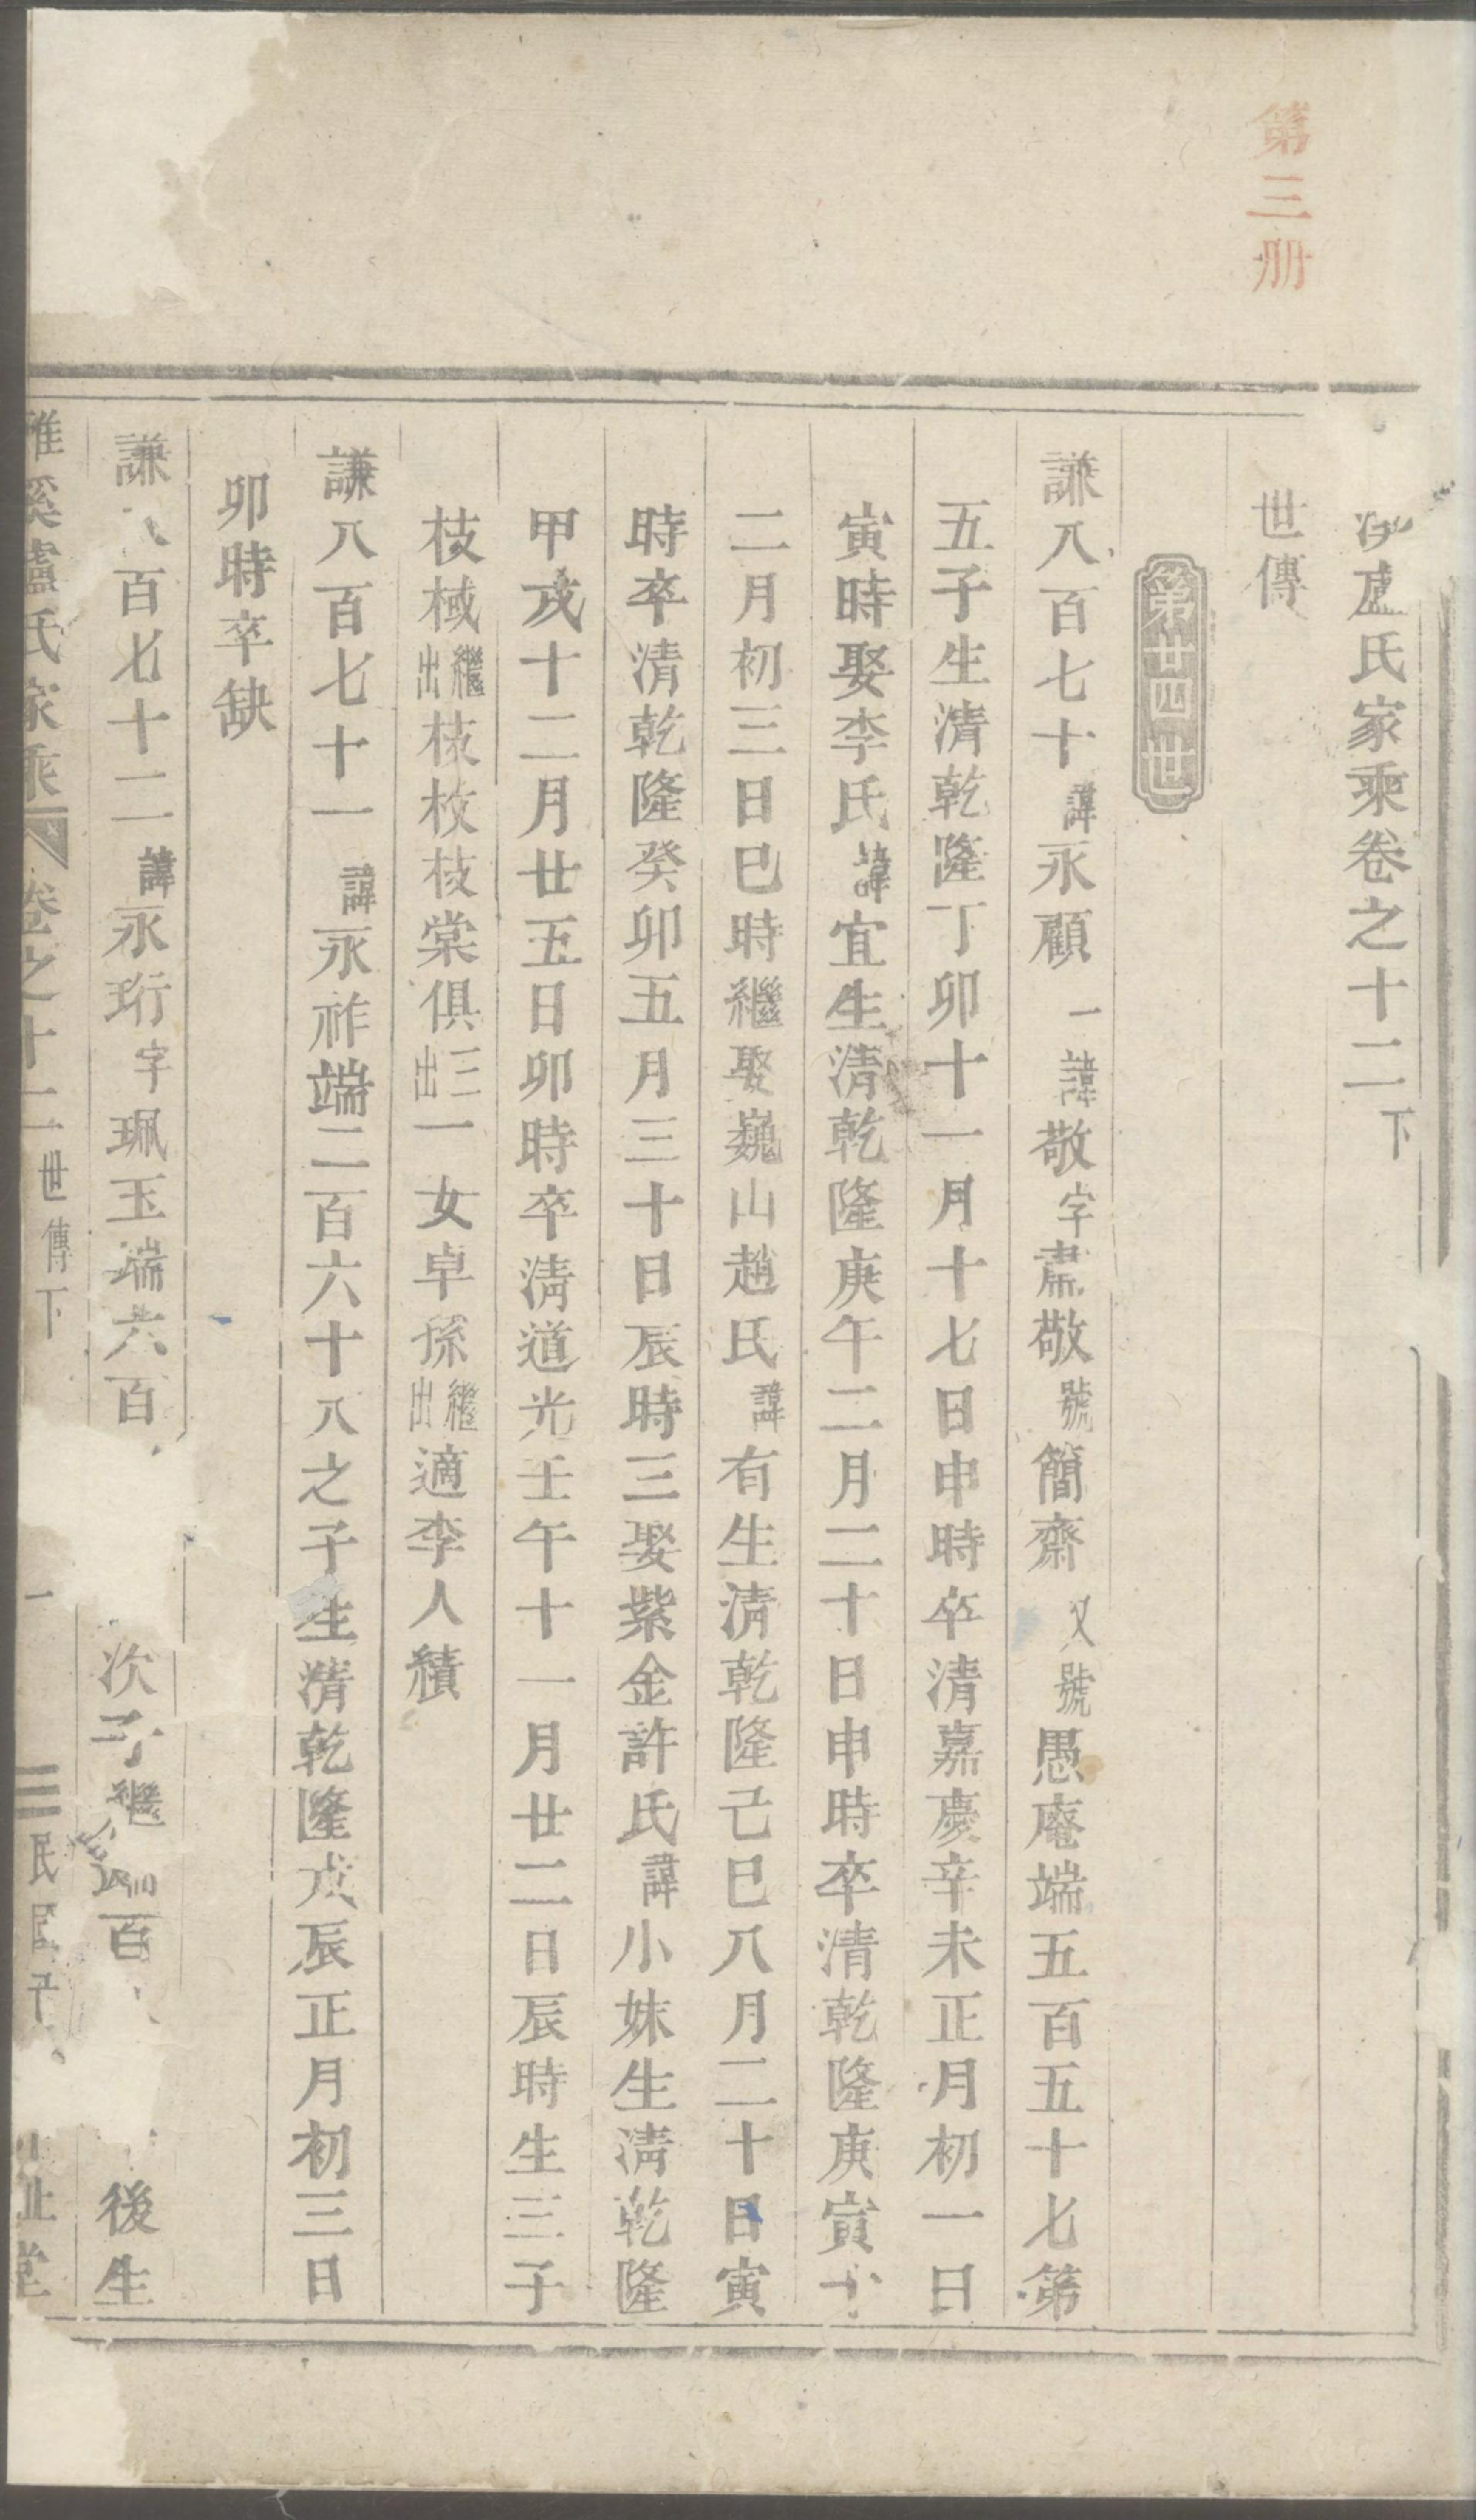 第三册
盧氏家乘卷之十二下
世傳
第廿四世
謙八百七十諱永顧一諱敬字肅敬號簡齋又號愚庵端五百五十七第
五子生清乾隆丁卯十一月十七日申時卒清嘉慶辛未正月初一日
寅時娶李氏諱宜生清乾隆庚午二月二十日申時卒清乾隆庚寅十
二月初三日巳時繼娶巍山趙氏諱有生清乾隆己巳八月二十日寅
時卒清乾隆癸卯五月三十日辰時三娶紫金許氏諱小妹生清乾隆
甲戌十二月廿五日卯時卒清道光壬午十一月廿二日辰時生三子
枝棫繼出枝枚枝棠俱三出一女卓孫繼出適李人積
謙八百七十一諱永祚端二百六十八之子生清乾隆戊辰正月初三日
卯時卒缺
謙八百七十二諱永珩字珮玉端六百次子繼百後生
雅溪盧氏家乘卷之十二世傳下一